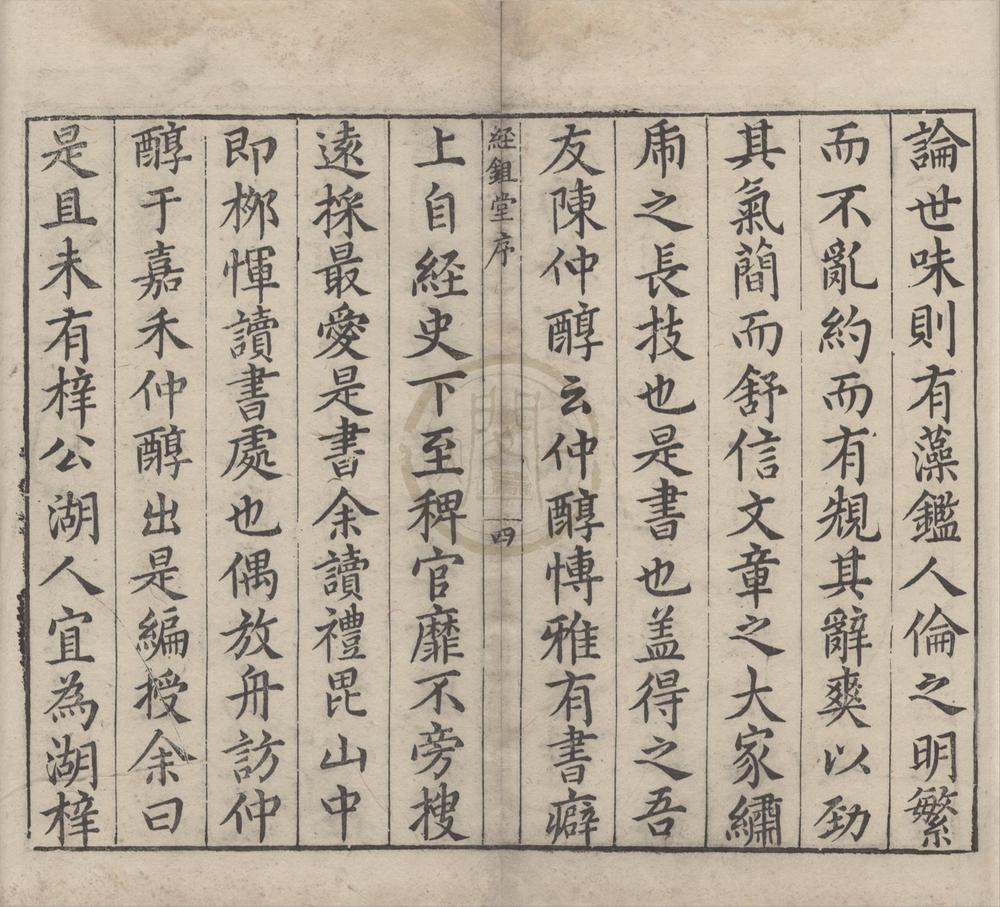 論世味則有藻鑑人倫之明繁
而不亂約而有䂓其辭爽以勁
其氣簡而舒信文章之大家繡
虎之長技也是書也盖得之吾
友陳仲醇云仲醇博雅有書癖
経鉏堂序
四
上自經史下至稗官靡不旁搜
遠採最愛是書余讀禮毘山中
即栁惲讀書處也偶放舟訪仲
醇于嘉禾仲醇出是編授余曰
是且未有梓公湖人宜為湖梓